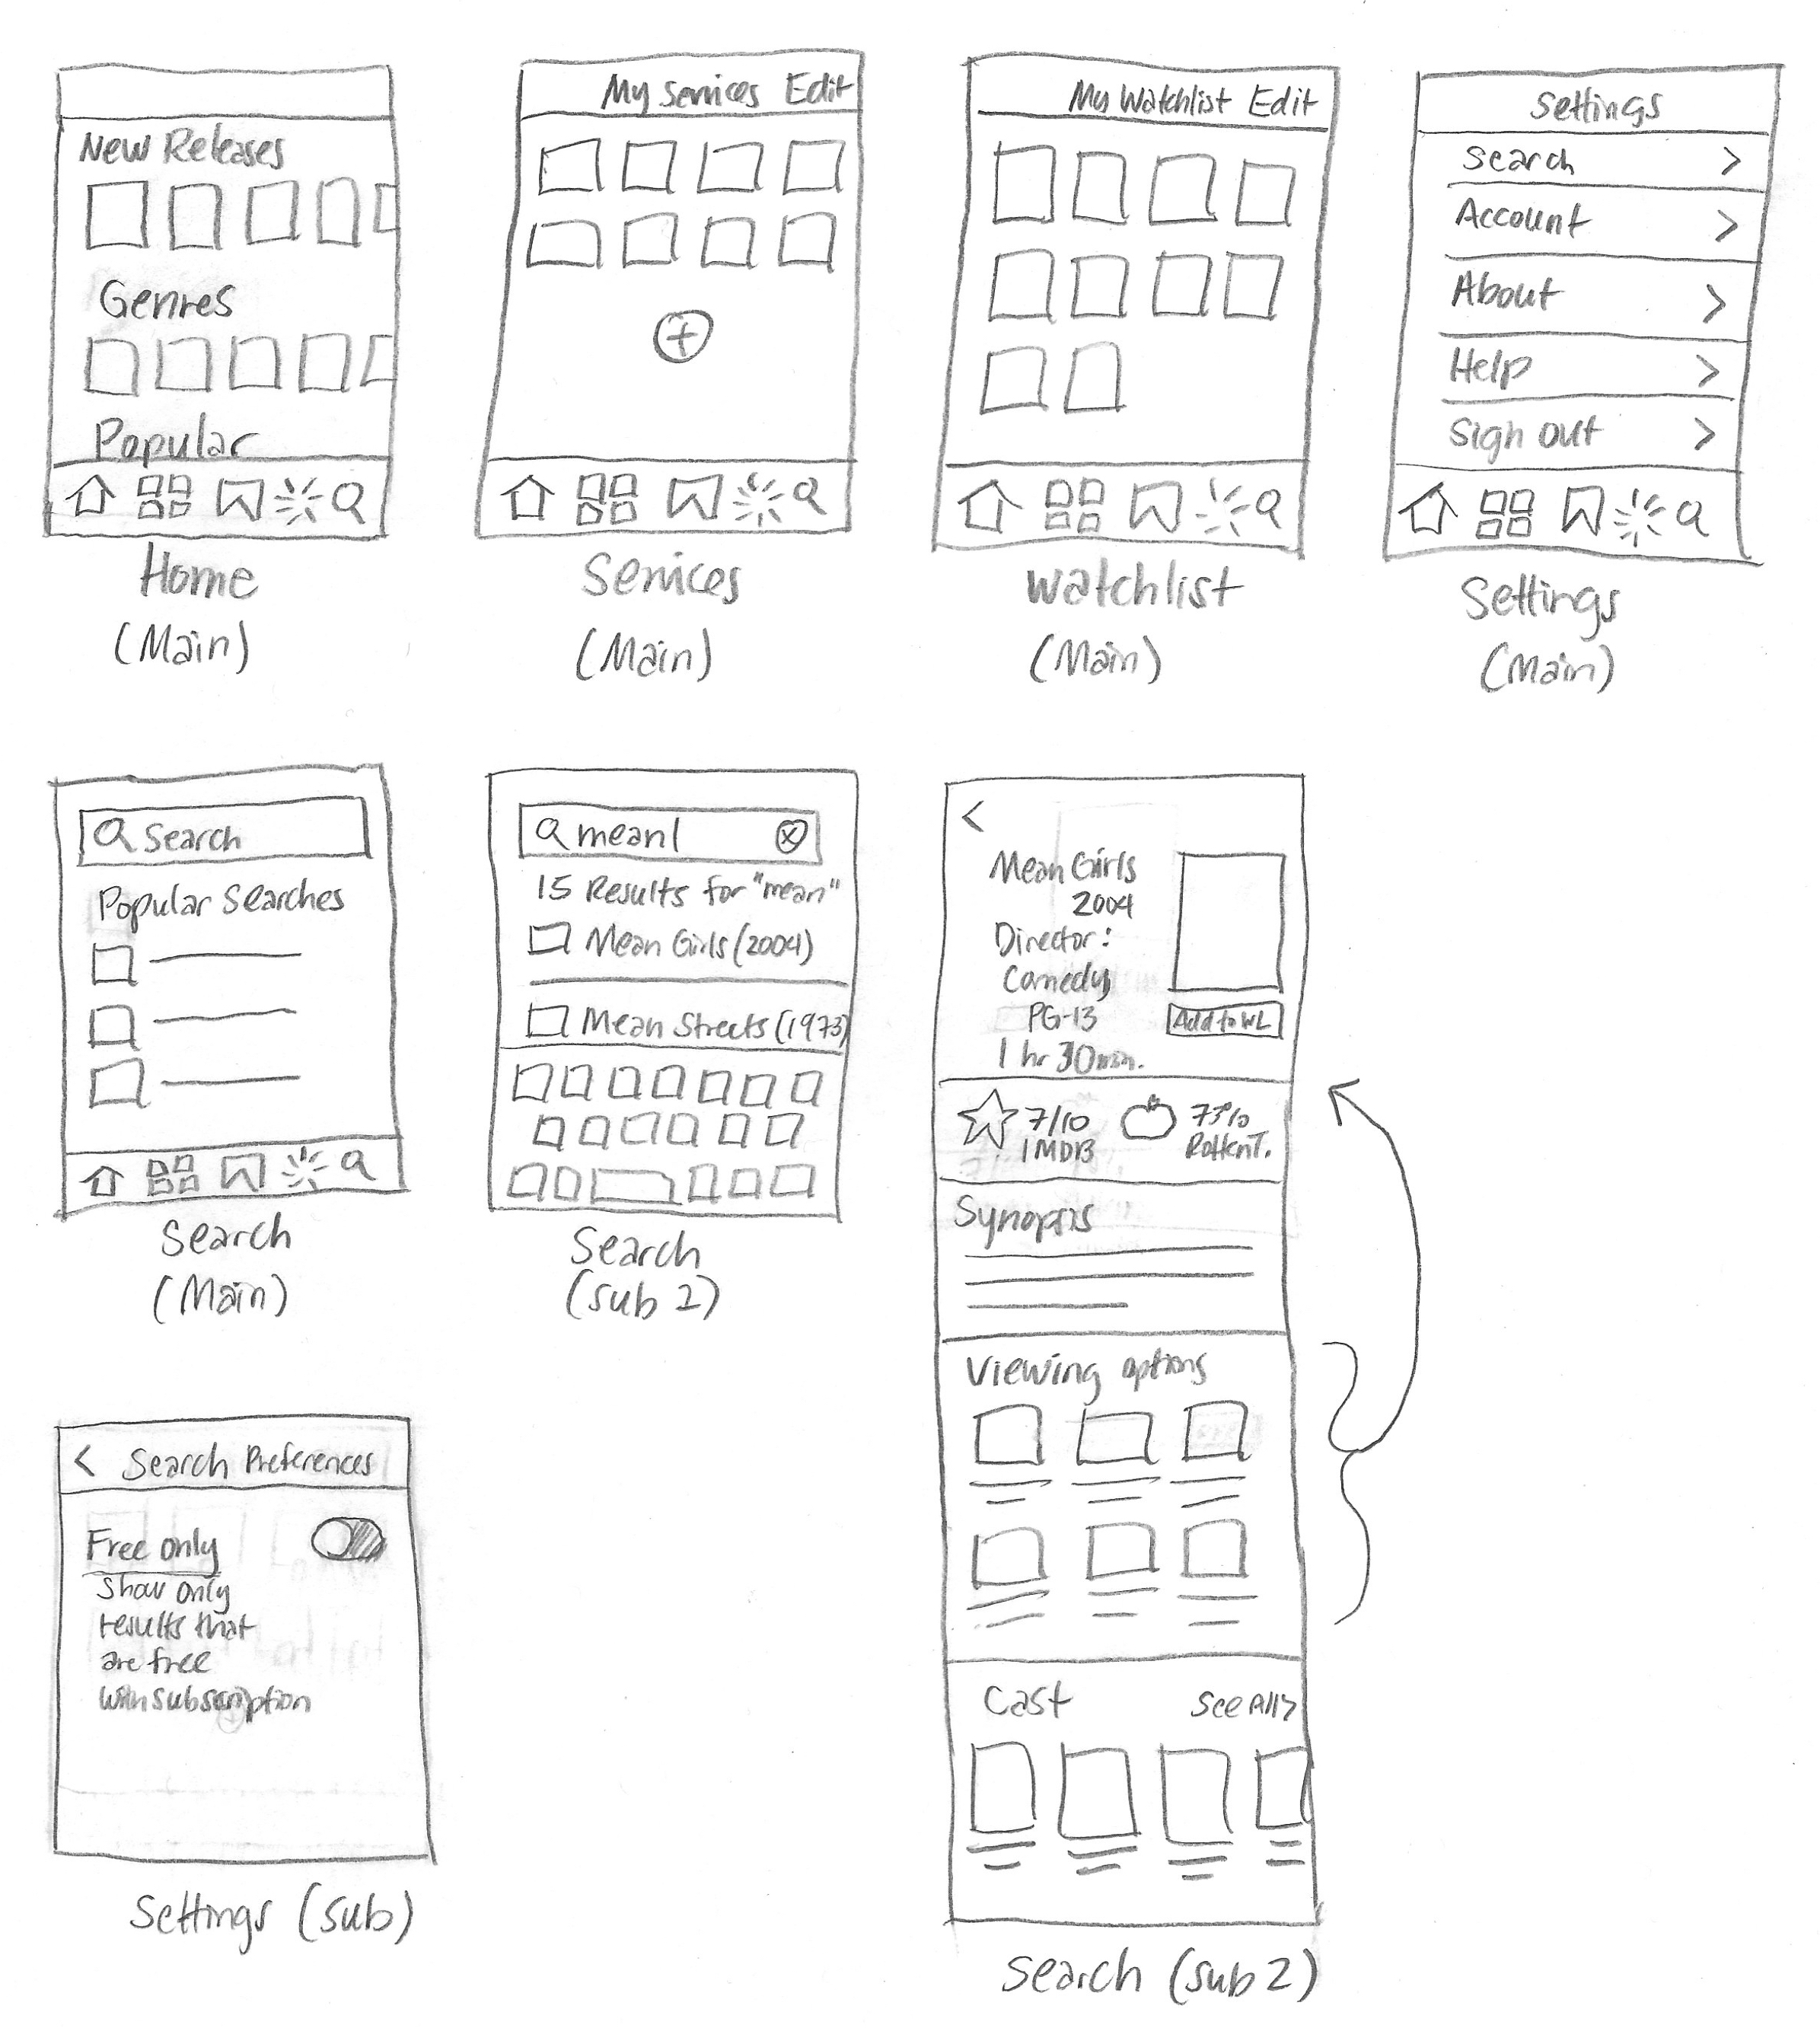 New Releases
Genres
Popular
Home
(Main)
My Services Edit
Services
(Main)
My Watchlist Edit
Watchlist
(Main)
Settings
Search >
Account >
About >
Help >
Sign Out >
Settings
(Main)
Search
Popular Searches
Search
(Main)
mean|
15 Results for "mean"
Mean Girls (2004)
Mean Streets (1973)
Search
(sub 2)
<
Mean Girls
2004
Director:
Comedy
PG-13
1 hr 30min.
Add to WL
7/10
IMDB
73%
RottenT.
Synopsis
Viewing options
Cast See All>
Search (sub 2)
< Search Preferences
Free only
Show only
results that
are free
with subscription
Settings (sub)